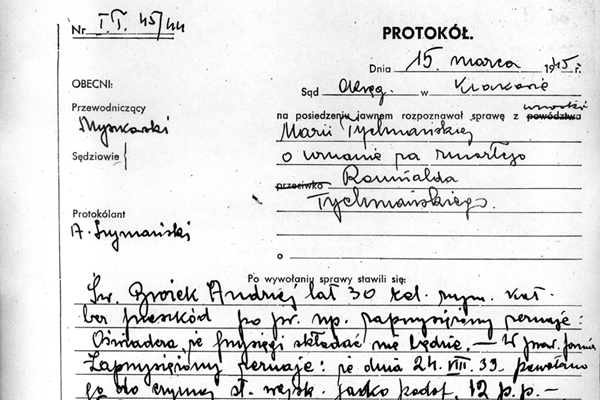 Nr I. T. 45/44
PROTOKÓŁ.
Dnia 15. marca 1945 r.
OBECNI:
Sąd Okręg. w Krakowie
Przewodniczący
na posiedzeniu jawnem rozpoznawał sprawę z wniosku powództwa
Marii Tychmańskiej
Sędziowie
o uznanie za zmarłego
przeciwko Romualda
Tychmańskiego.
Protokólant
A. Szymański
o
Po wywołaniu sprawy stawili się:
Św. Andrzej lat 30 rel. rzym. kat.
bez przeszkód po pr. np. zaprzysiężony zeznaje:
Oświadcza, że przysięgi składać nie będzie. —
Zaprzysiężony zeznaje: że dnia 24. VIII. 39. powołano
go do czynnej sł. wojsk. jako podof. 12 p.p. —